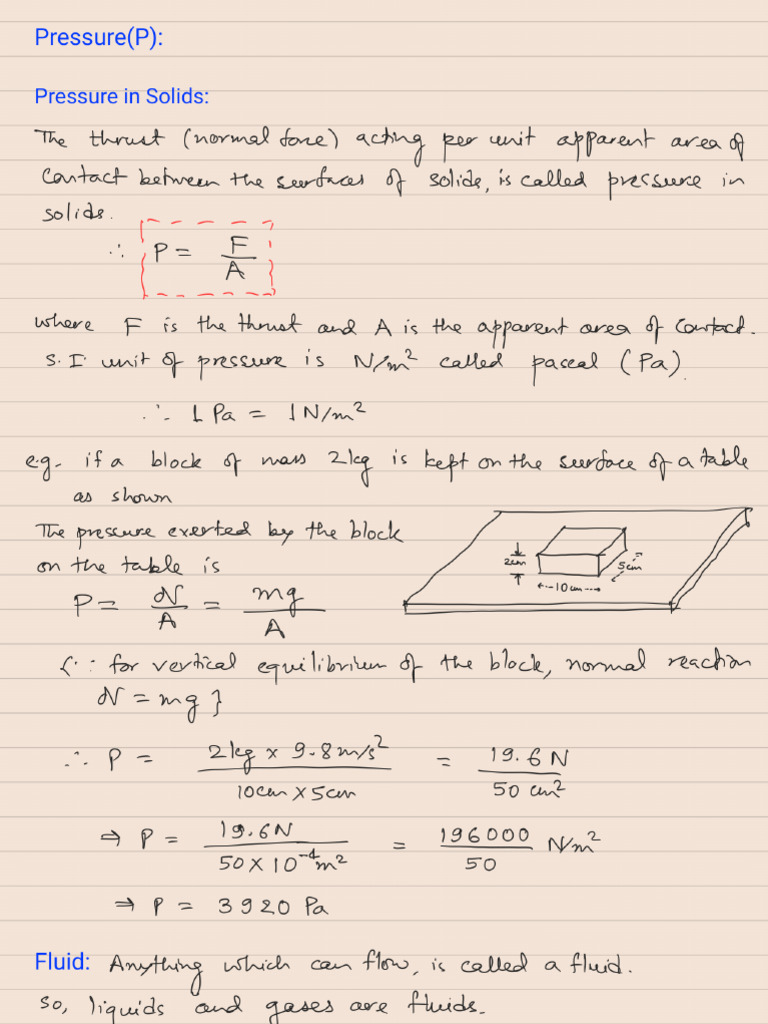 Pressure(P):
Pressure in Solids:
The thrust (normal force) acting per unit apparent area of
contact between the surfaces of solids, is called pressure in
solids.
∴ P = F/A
where F is the thrust and A is the apparent area of contact.
S.I unit of pressure is N/m² called pascal (Pa).
∴ 1 Pa = 1 N/m²
e.g. if a block of mass 2kg is kept on the surface of a table
as shown
The pressure exerted by the block
on the table is
2cm 5cm
10cm
P = N/A = mg/A
{∵ for vertical equilibrium of the block, normal reaction
N = mg}
∴ P = 2kg × 9.8m/s² / 10cm × 5cm = 19.6 N / 50 cm²
⇒ P = 19.6N / 50 × 10⁻⁴m² = 196000 / 50 N/m²
⇒ P = 3920 Pa
Fluid: Anything which can flow, is called a fluid.
So, liquids and gases are fluids.